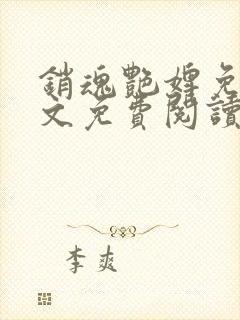 銷魂艷婢免
文免費閱讀
李爽